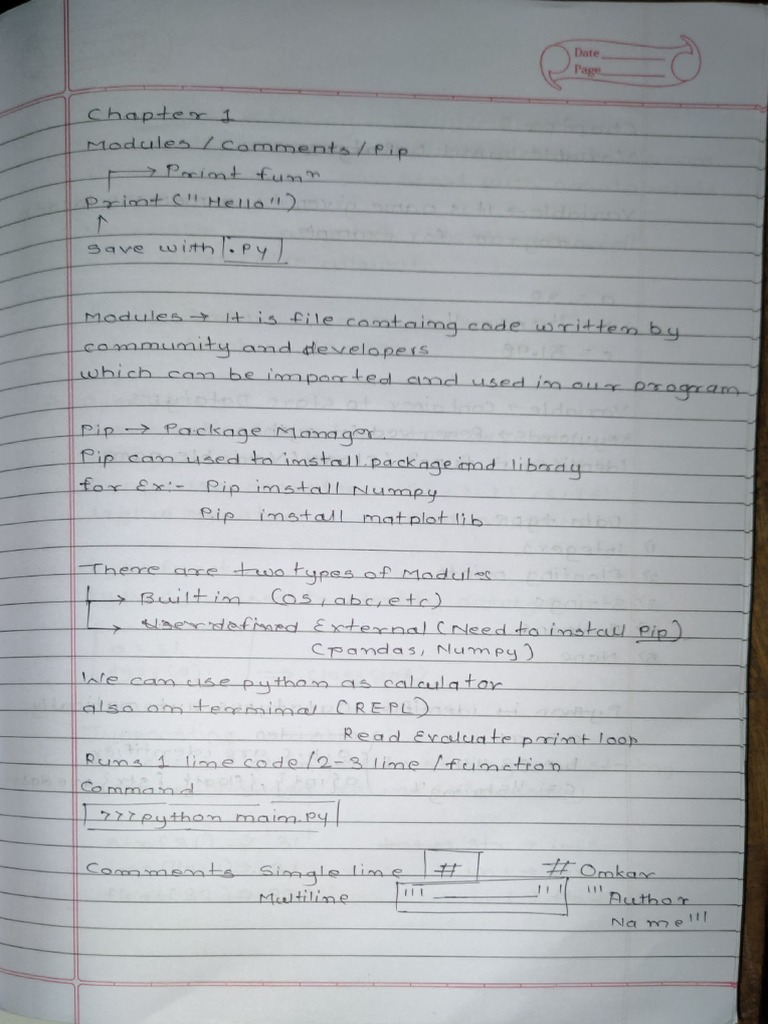 Date
Page
Chapter 1
Modules / Comments / Pip
→ Print funⁿ
Print ("Hello")
↑
Save with .Py
Modules → It is file containg code written by
community and developers
which can be imported and used in our program
Pip → Package Manager.
Pip can used to install package and libray
for Ex:- Pip install Numpy
Pip install matplotlib
There are two types of Modules
→ Built in (OS, abc, etc)
→ External (Need to install Pip)
(pandas, Numpy)
We can use python as calculator
also on terminal (REPL)
Read Evaluate print loop
Runs 1 line code / 2-3 line / function
Command
>>> python main.py
Comments Single line # # Omkar
Multiline ''' ''' '''Author
Name'''